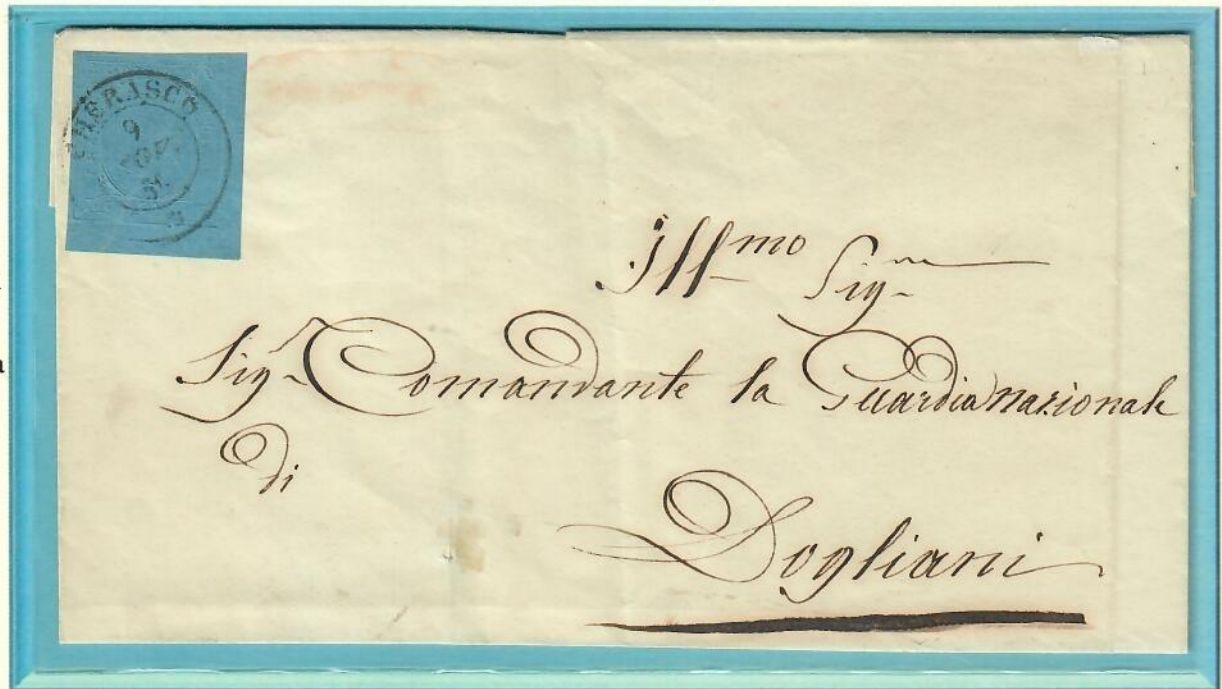 CHERASCO
9
Ill.mo Sig.
Sig.r Comandante la Guardia nazionale
di
Dogliani
a